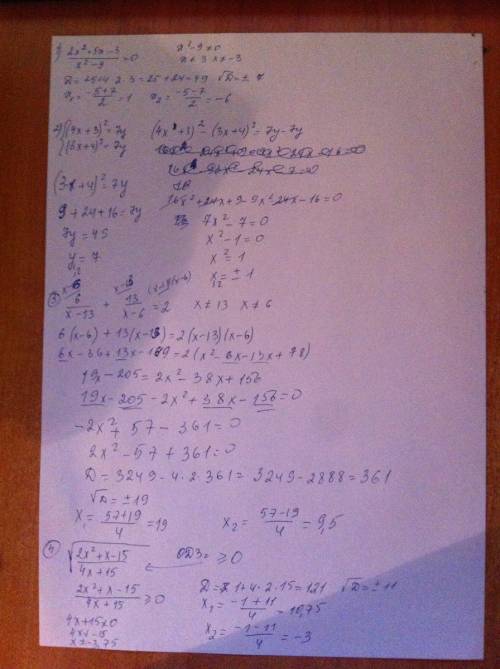 1) (2x²+5x-3)/(x²-9) = 0    x²-9≠0
x≠3 x≠-3
D=25+4·2·3=25+24=49 √D=±7
x₁=(-5+7)/2=1    x₂=(-5-7)/2=-6
2) {(4x+3)²=7y    (4x+3)²-(3x+4)²=7y-7y
{(3x+4)²=7y
(3x+4)²=7y
16x²+24x+9-9x²-24x-16=0
9+24+16=7y    7x²-7=0
7y=49    x²-1=0
y=7    x²=1
x₁₂=±1
③ 6/(x-13) + 13/(x-6) = 2    x≠13 x≠6
6(x-6)+13(x-13)=2(x-13)(x-6)
6x-36+13x-169=2(x²-6x-13x+78)
19x-205=2x²-38x+156
19x-205-2x²+38x-156=0
-2x²+57-361=0
2x²-57+361=0
D=3249-4·2·361=3249-2888=361
√D=±19
x₁=(57+19)/4=19    x₂=(57-19)/4=9,5
④ √((2x²+x-15)/(4x+15))    ОДЗ: ≥0
(2x²+x-15)/(4x+15)≥0    D=1+4·2·15=121 √D=±11
4x+15≠0    x₁=(-1+11)/4=
4x≠-15    x₂=(-1-11)/4=-3
x≠-3,75